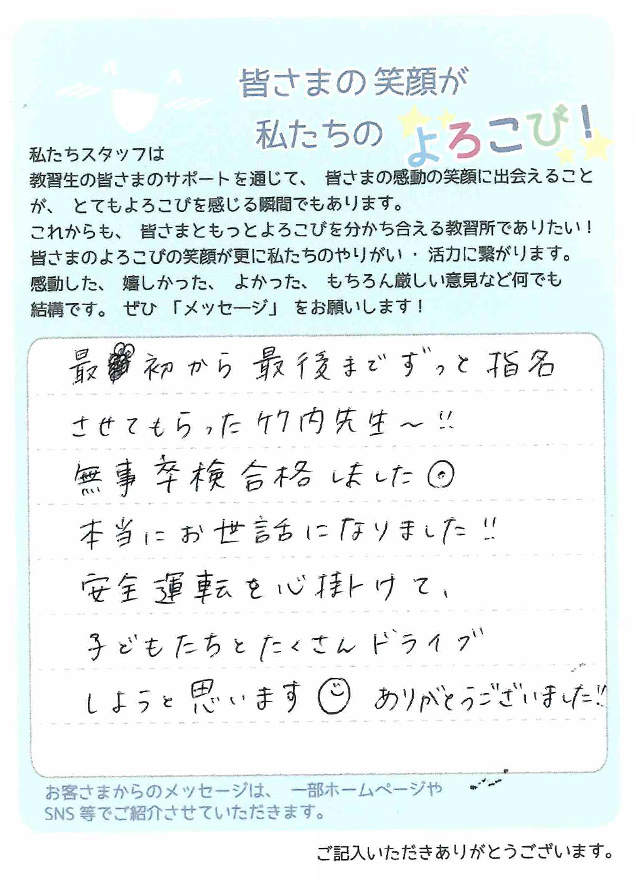 皆さまの笑顔が
私たちの よろこび！
私たちスタッフは
教習生の皆さまのサポートを通じて、 皆さまの感動の笑顔に出会えること
が、 とてもよろこびを感じる瞬間でもあります。
これからも、 皆さまともっとよろこびを分かち合える教習所でありたい！
皆さまのよろこびの笑顔が更に私たちのやりがい ・ 活力に繋がります。
感動した、 嬉しかった、 よかった、 もちろん厳しい意見など何でも
結構です。 ぜひ 「メッセージ」 をお願いします！
最初から最後までずっと指名
させてもらった竹内先生～!!
無事卒検合格しました
本当にお世話になりました!!
安全運転を心掛けて、
子どもたちとたくさんドライブ
しようと思います ありがとうございました!!
お客さまからのメッセージは、 一部ホームページや
SNS 等でご紹介させていただきます。
ご記入いただきありがとうございます。